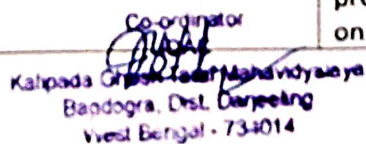 pro
on
Co-ordinator
IQAC
Kalipada Ghosh Tarai Mahavidyalaya
Bagdogra, Dist. Darjeeling
West Bengal - 734014